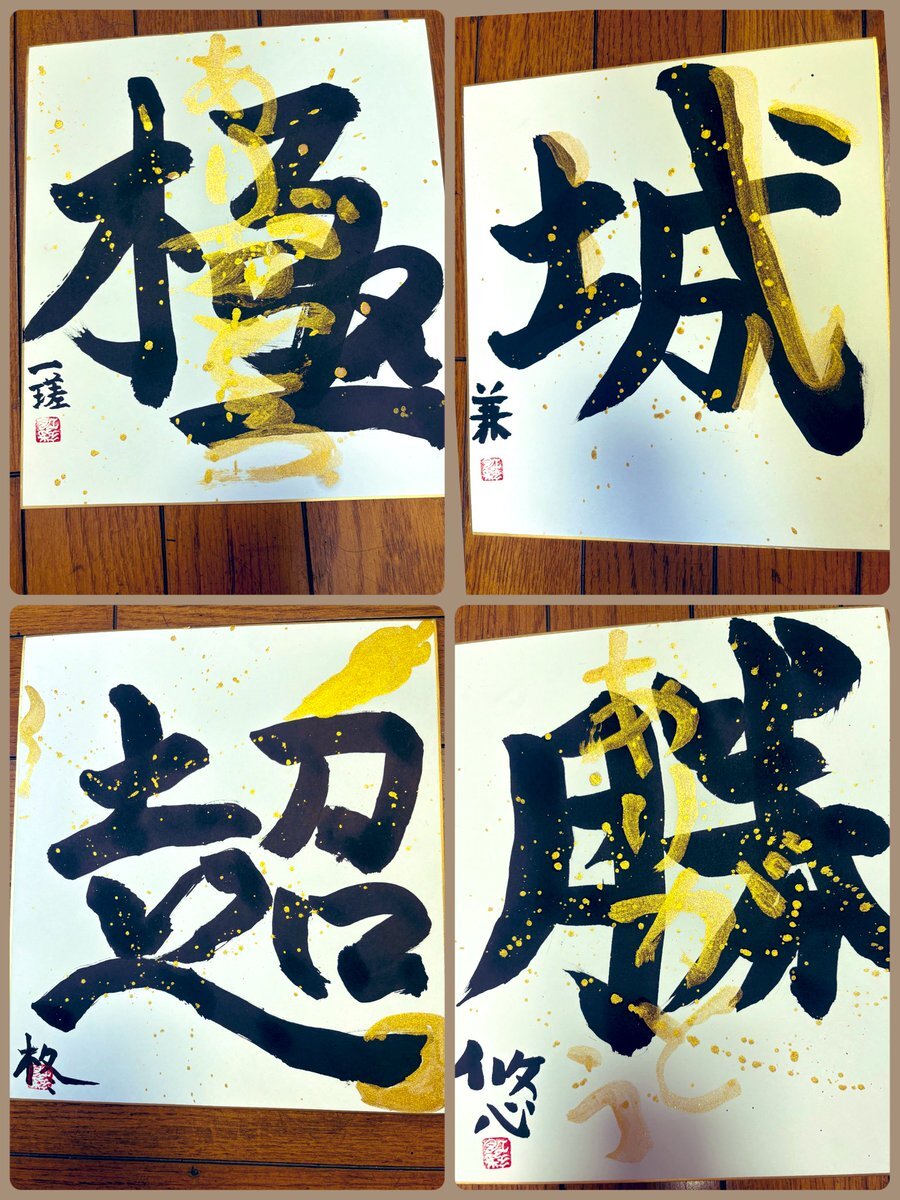 極
ありがとう
一瑳
城
兼
超
柊
勝
ありがとう
悠